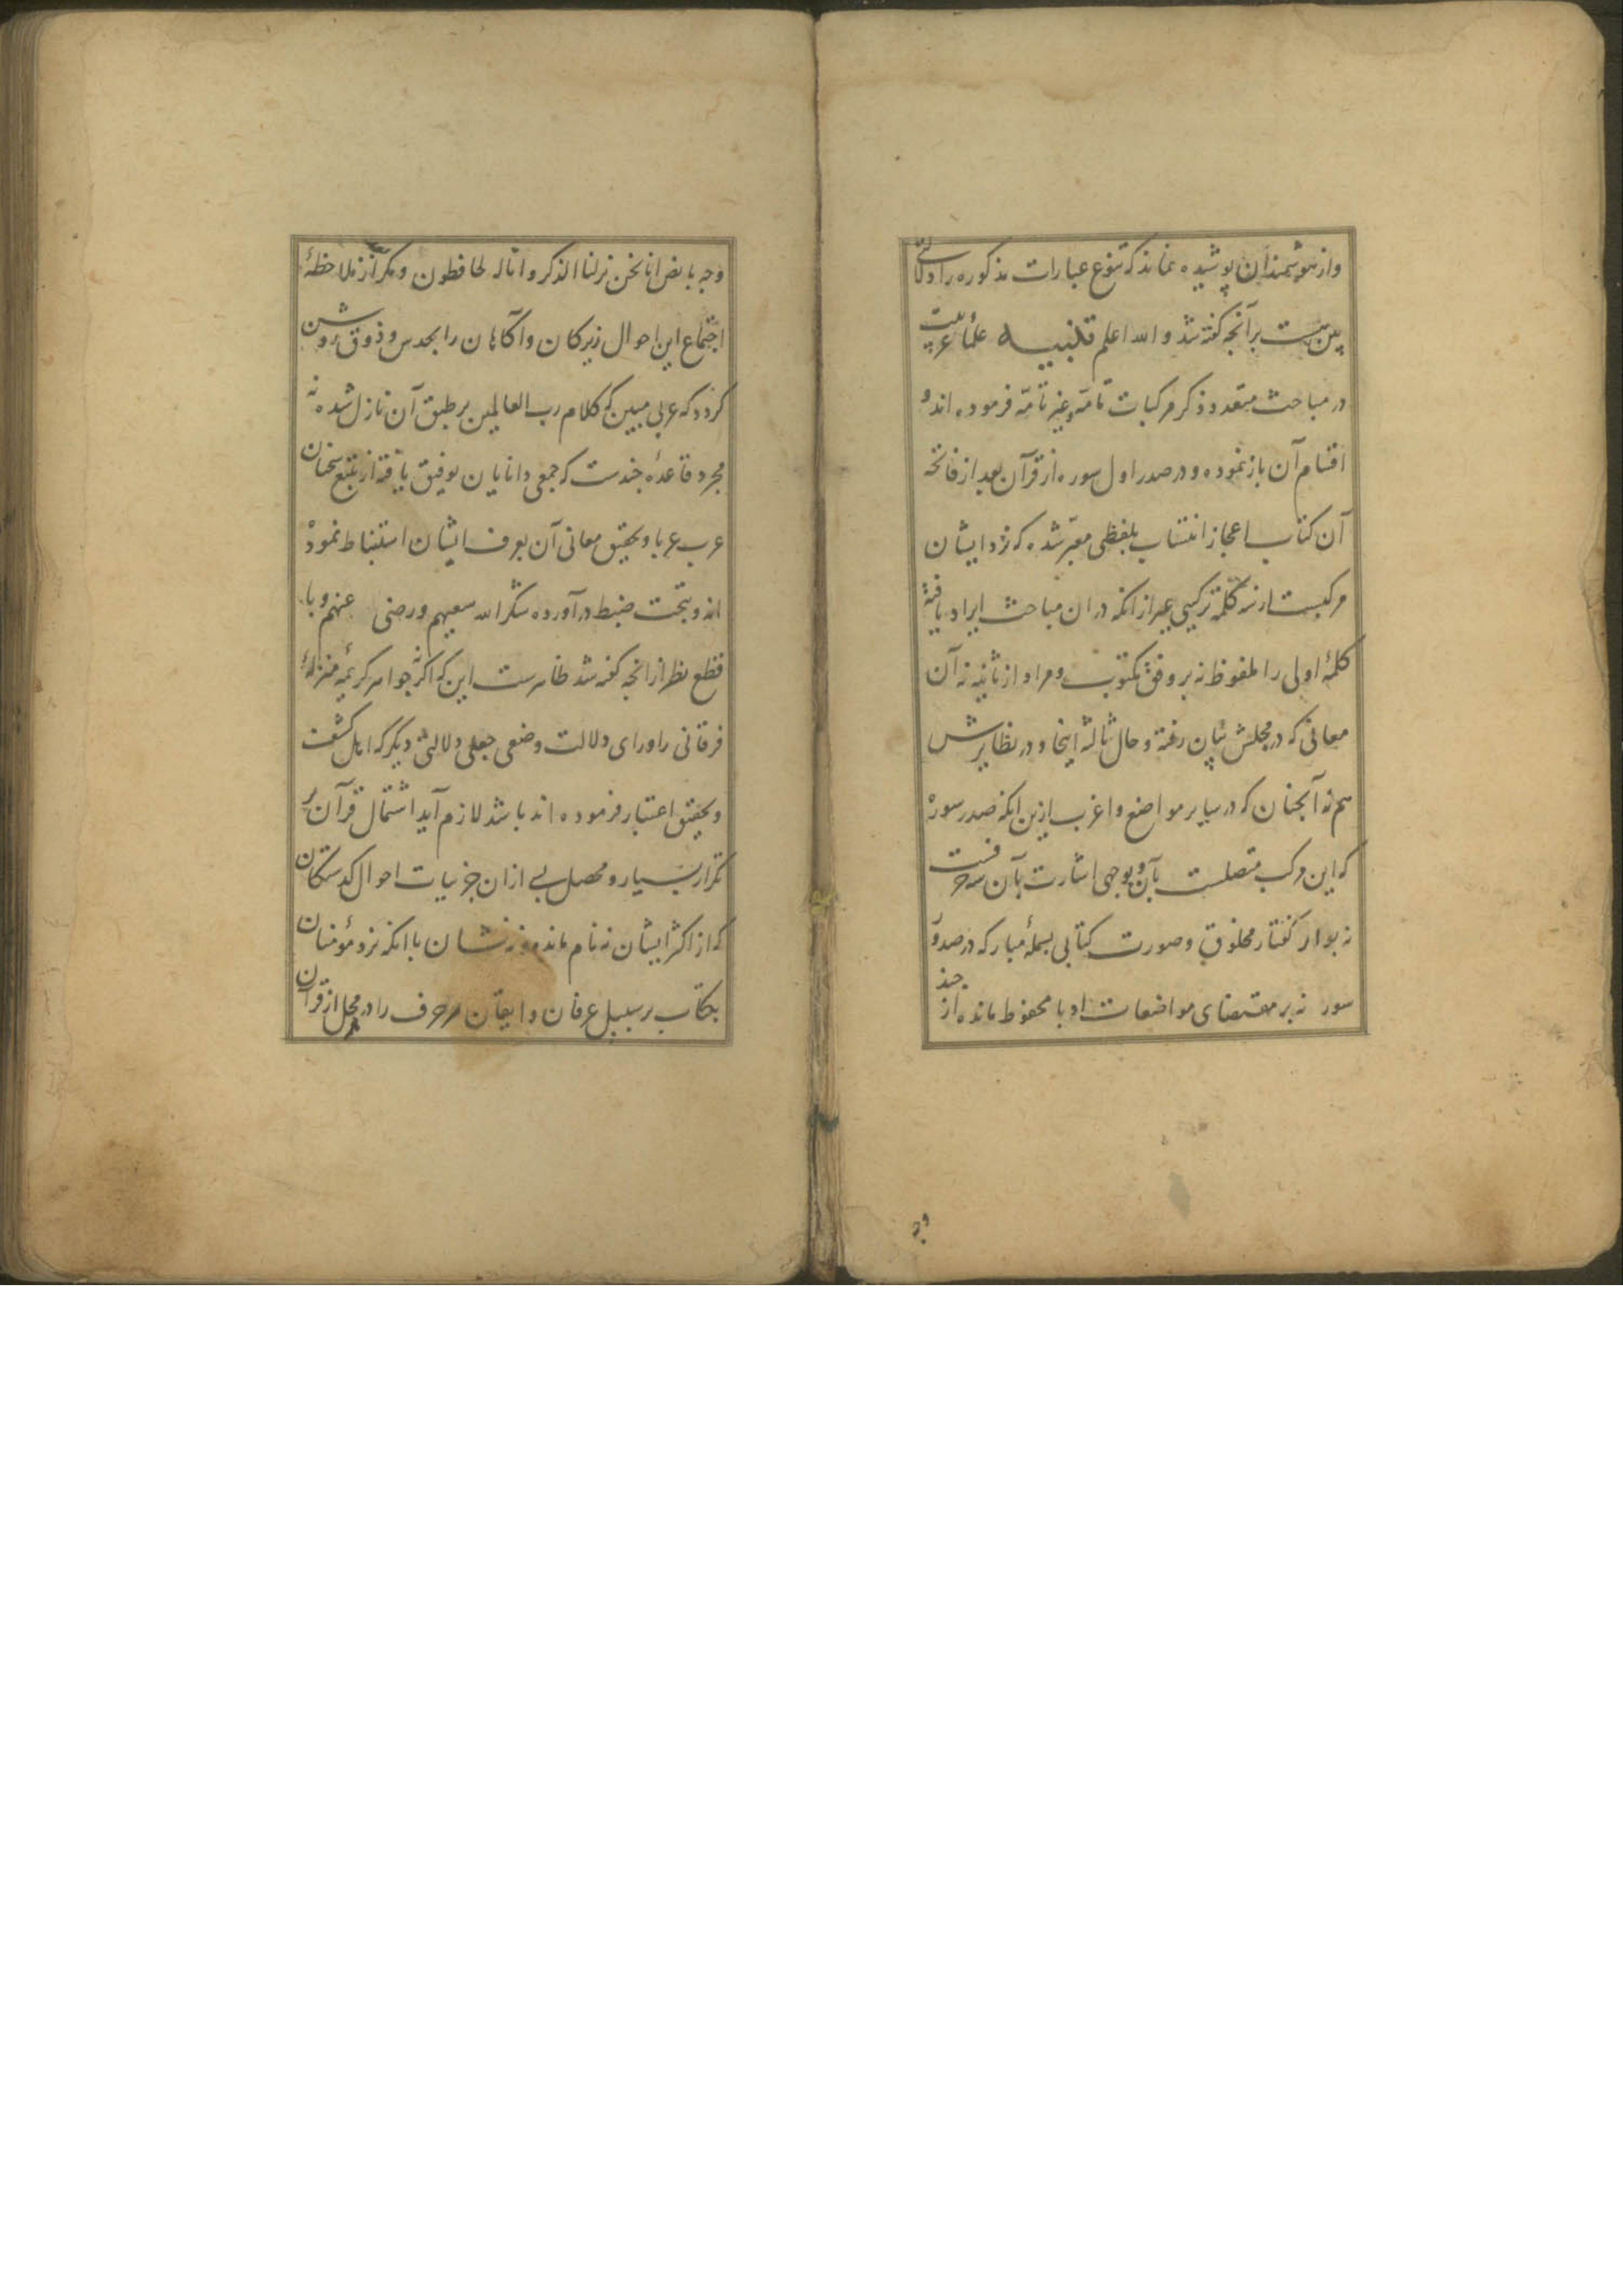 واز هوشمندان پوشیده نماند که تنوع عبارات مذکوره را دلالتی
بین است بر آنچه گفته شد والله اعلم تنبیه علماء عربیت
در مباحث متعدد ذکر مرکبات تامه وغیر تامه فرموده اند و
اقسام آن باز نموده و در صدر اول سوره از قرآن بعد از فاتحه
آن کتاب اعجاز انتساب بلفظی معبر شده که نزد ایشان
مرکبست از سه کلمه ترکیبی غیر از انکه در ان مباحث ایراد یافته
کلمهٔ اولی را ملفوظ نه بر وفق مکتوب و مراد از ثانیه نه آن
معانی که در محلش بیان رفته و حال ثالثه اینجا و در نظایرش
هم نه آنچنان که در سایر مواضع واغرب ازین انکه صدر سورهٔ
که این مرکب متصلست بآن و بوجهی اشارت بآن سه حرفست
نه بواد کفتار مخلوق و صورت کتابی بسملهٔ مبارکه در صدور
سور نه بر مقتضای مواضعات ادبا محفوظ مانده از جند
وجه
وجه بابض انا نحن نزلنا الذکر وانا له لحافظون و مکر از ملاحظهٔ
اجتماع این احوال زیرکان واکاهان را بحدس و ذوق روشن
کردد که عربی مبین که کلام رب العالمین بر طبق آن نازل شده نه
مجرد قاعدهٔ جندست که جمعی دانایان توفیق یافته از تتبع سخنان
عرب عربا وتحقیق معانی آن بعرف ایشان استنباط نموده
اند و بتحت ضبط درآورده شکر الله سعیهم ورضی عنهم وبا
قطع نظر از انچه کفته شد ظاهرست این که اکثر جواهر کریمهٔ منزلهٔ
فرقانی را ورای دلالت وضعی جعلی دلالتی دیکر که اهل کشف
وتحقیق اعتبار فرموده اند باشد لازم آید اشتمال قرآن بر
تکرار بسیار و محصل بی از ان جزییات احوال کذشتکان
که از اکثر ایشان نه نام مانده و نه نشان با انکه نزد مؤمنان
بکتاب بر سبیل عرفان وایقان هر حرف را در هر محل از قرآن